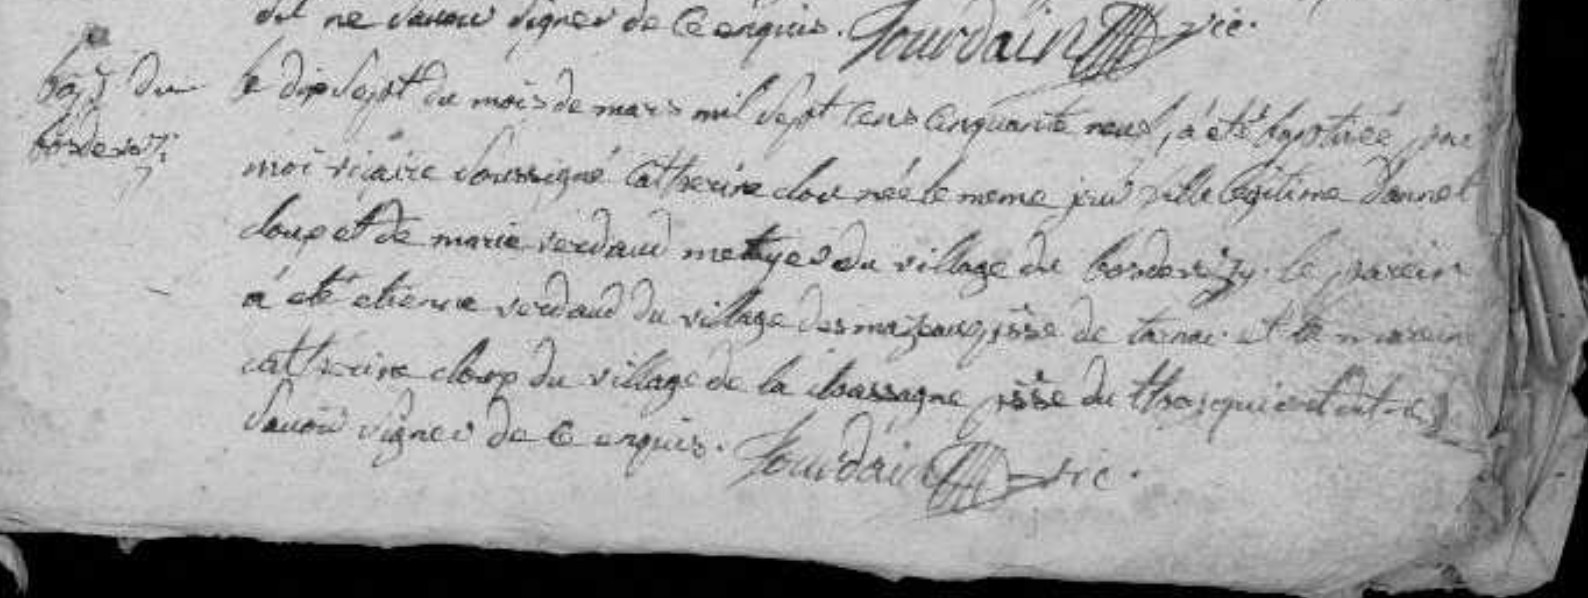 dit ne savoir signer de ce enquis. Jourdain vic.
bap. du
le dix sept du mois de mars mil sept cens cinquante neuf, a été baptisée par
bordes
moi vicaire soussigné Catherine clou née le meme jour fille legitime d'annet
cloup et de marie verdaud metayers du village du . le parein
a été etienne verdaud du village des mazeaux psse de tarnac et la mareine
catherine cloup du village de la chassagne psse du qui ont dit ne
savoir signer de ce enquis. Jourdain vic.